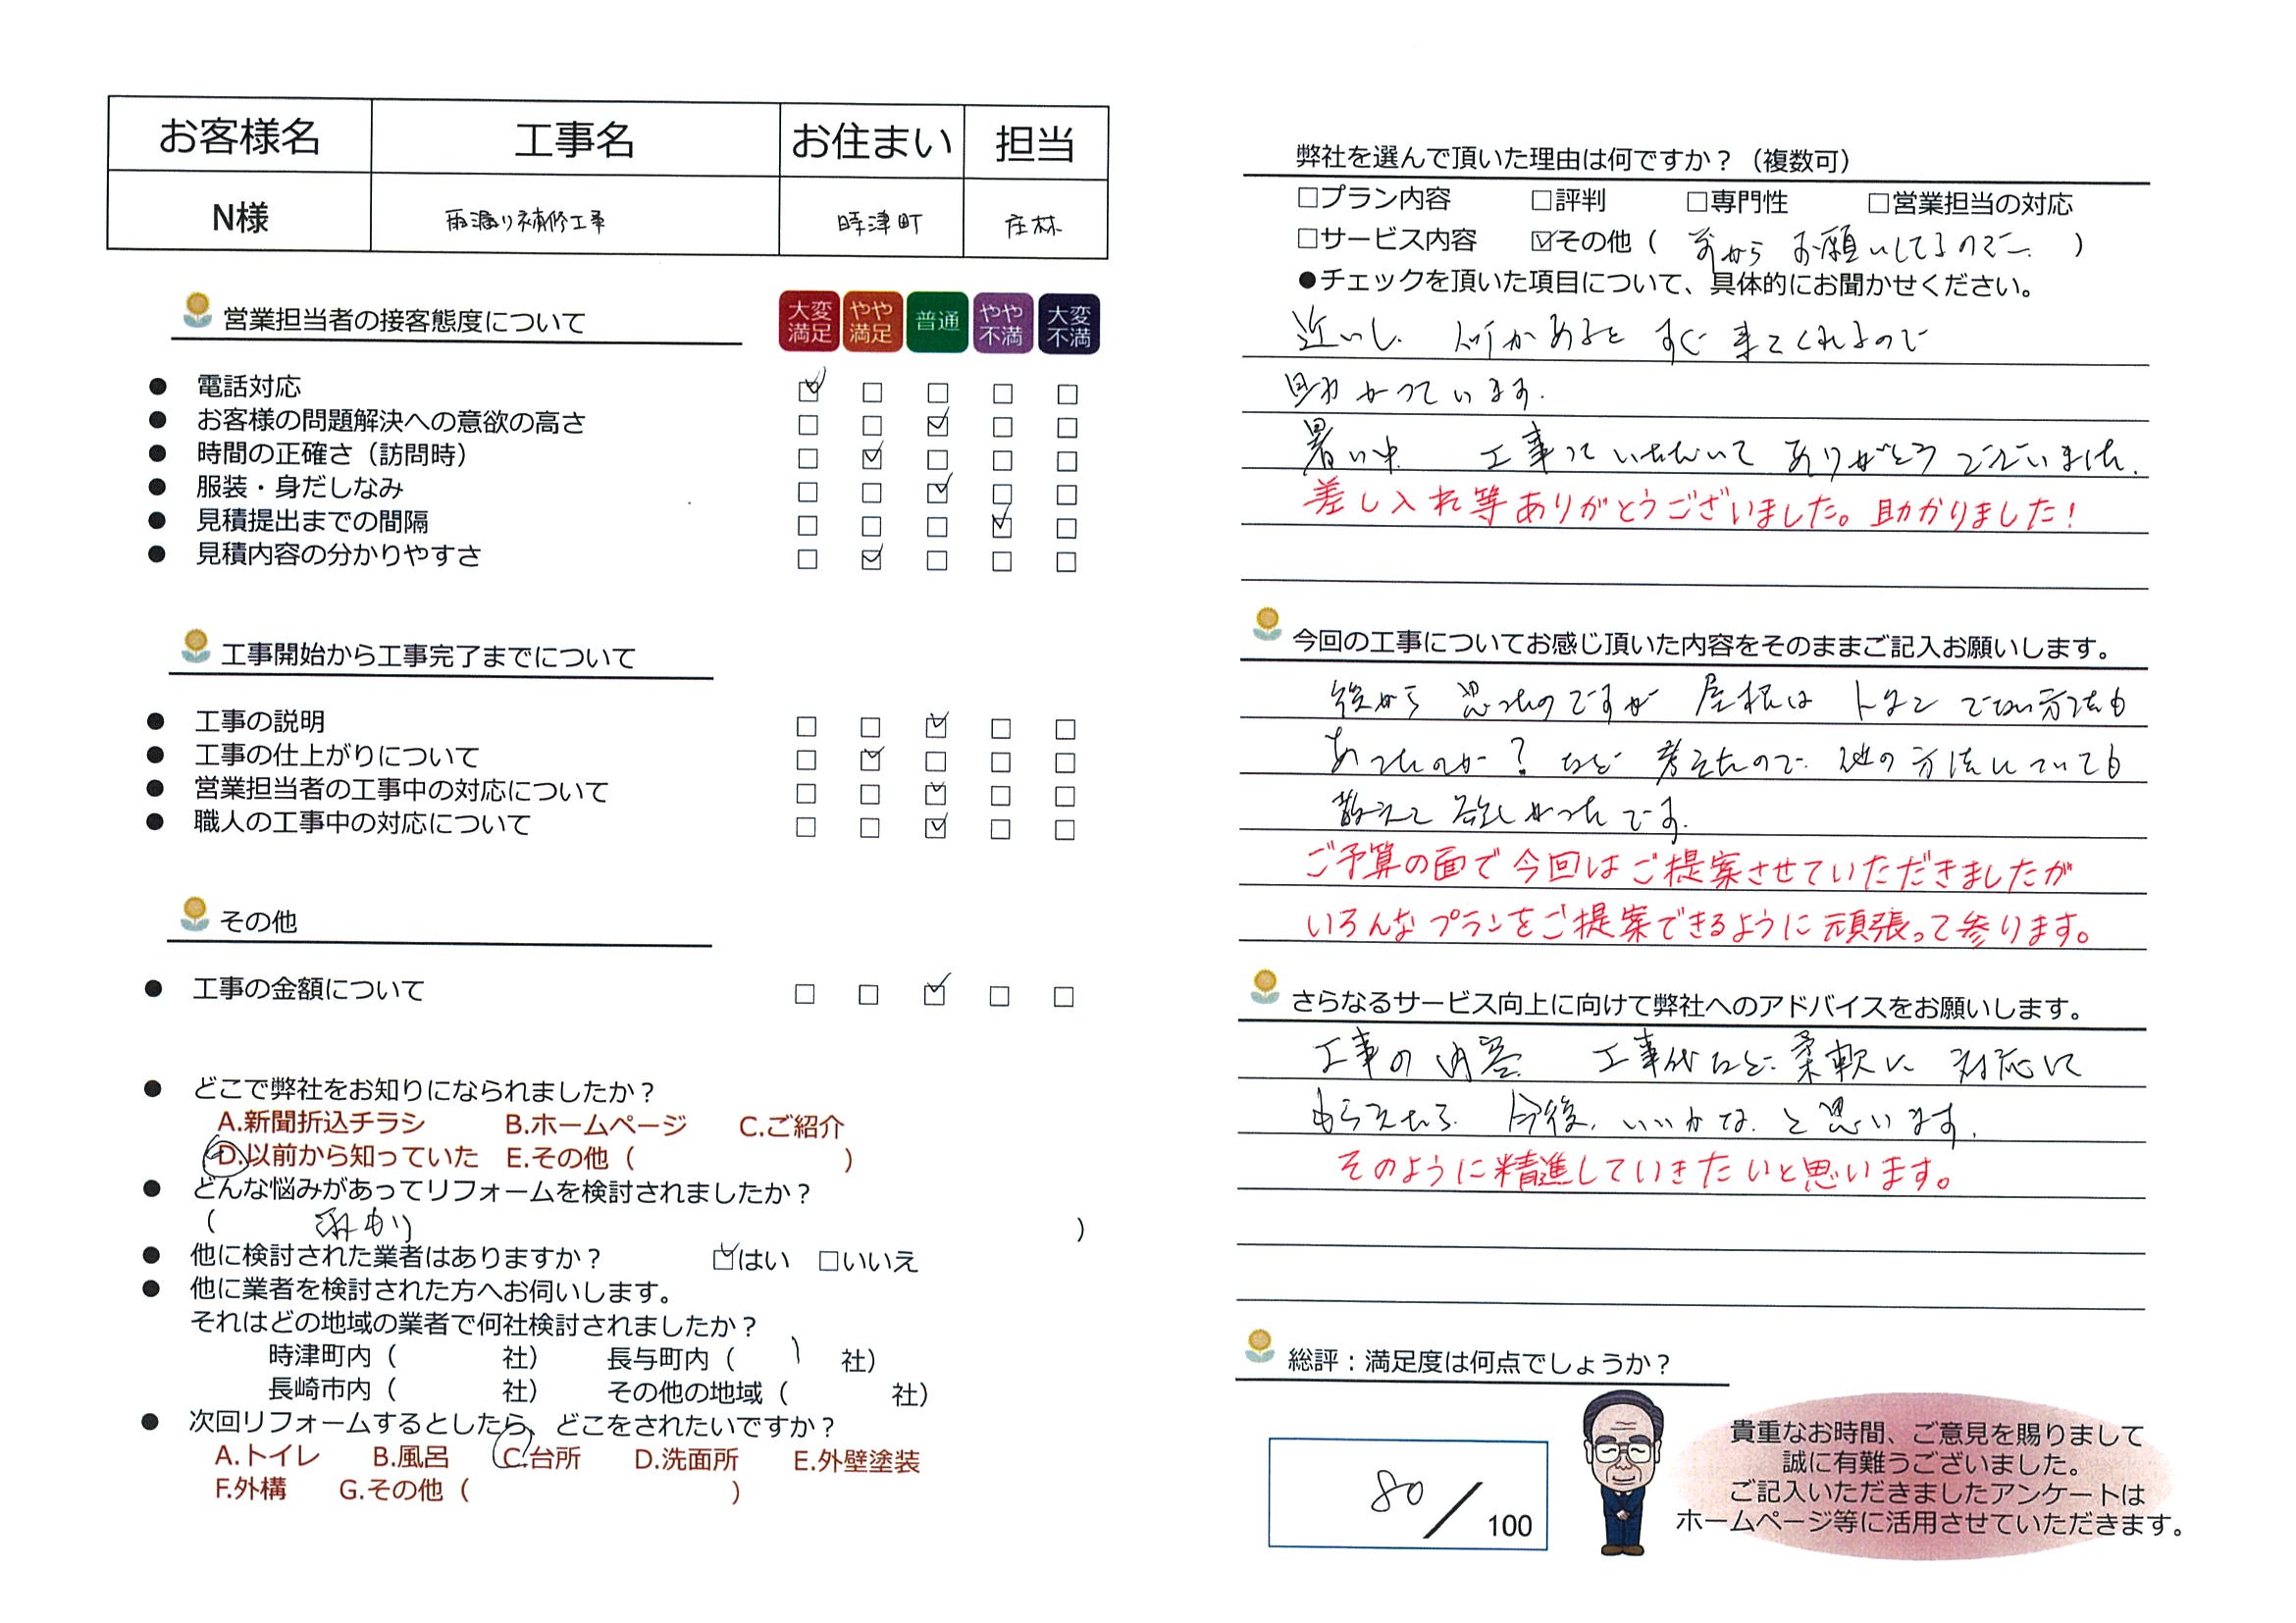 お客様名 工事名 お住まい 担当
N様 雨漏り補修工事 時津町 庄林
営業担当者の接客態度について
大変満足 やや満足 普通 やや不満 大変不満
● 電話対応 ☑ □ □ □ □
● お客様の問題解決への意欲の高さ □ □ ☑ □ □
● 時間の正確さ（訪問時） □ ☑ □ □ □
● 服装・身だしなみ □ □ ☑ □ □
● 見積提出までの間隔 □ □ □ ☑ □
● 見積内容の分かりやすさ □ ☑ □ □ □
工事開始から工事完了までについて
● 工事の説明 □ □ ☑ □ □
● 工事の仕上がりについて □ ☑ □ □ □
● 営業担当者の工事中の対応について □ □ ☑ □ □
● 職人の工事中の対応について □ □ ☑ □ □
その他
● 工事の金額について □ □ ☑ □ □
● どこで弊社をお知りになられましたか？
A.新聞折込チラシ B.ホームページ C.ご紹介
D.以前から知っていた E.その他（ ）
● どんな悩みがあってリフォームを検討されましたか？
（ ）
● 他に検討された業者はありますか？ ☑はい □いいえ
● 他に業者を検討された方へお伺いします。
それはどの地域の業者で何社検討されましたか？
時津町内（ 社） 長与町内（ 1 社）
長崎市内（ 社） その他の地域（ 社）
● 次回リフォームするとしたら、どこをされたいですか？
A.トイレ B.風呂 C.台所 D.洗面所 E.外壁塗装
F.外構 G.その他（ ）
弊社を選んで頂いた理由は何ですか？（複数可）
□プラン内容 □評判 □専門性 □営業担当の対応
□サービス内容 ☑その他（ 前から お願いしてるので ）
●チェックを頂いた項目について、具体的にお聞かせください。
近いし 何かあると すぐ 来てくれるので
助かっています。
暑い中 工事していただいて ありがとうございました。
差し入れ等ありがとうございました。助かりました！
今回の工事についてお感じ頂いた内容をそのままご記入お願いします。
後から 思ったのですが 屋根は トタン でない方法も
あったのか？など 考えたので 他の方法についても
教えて 欲しかったです。
ご予算の面で今回はご提案させていただきましたが
いろんなプランをご提案できるように頑張って参ります。
さらなるサービス向上に向けて弊社へのアドバイスをお願いします。
工事の内容 工事代など 柔軟に 対応して
もらえたら 今後、いいかな と思います。
そのように精進していきたいと思います。
総評：満足度は何点でしょうか？
80/100
貴重なお時間、ご意見を賜りまして
誠に有難うございました。
ご記入いただきましたアンケートは
ホームページ等に活用させていただきます。